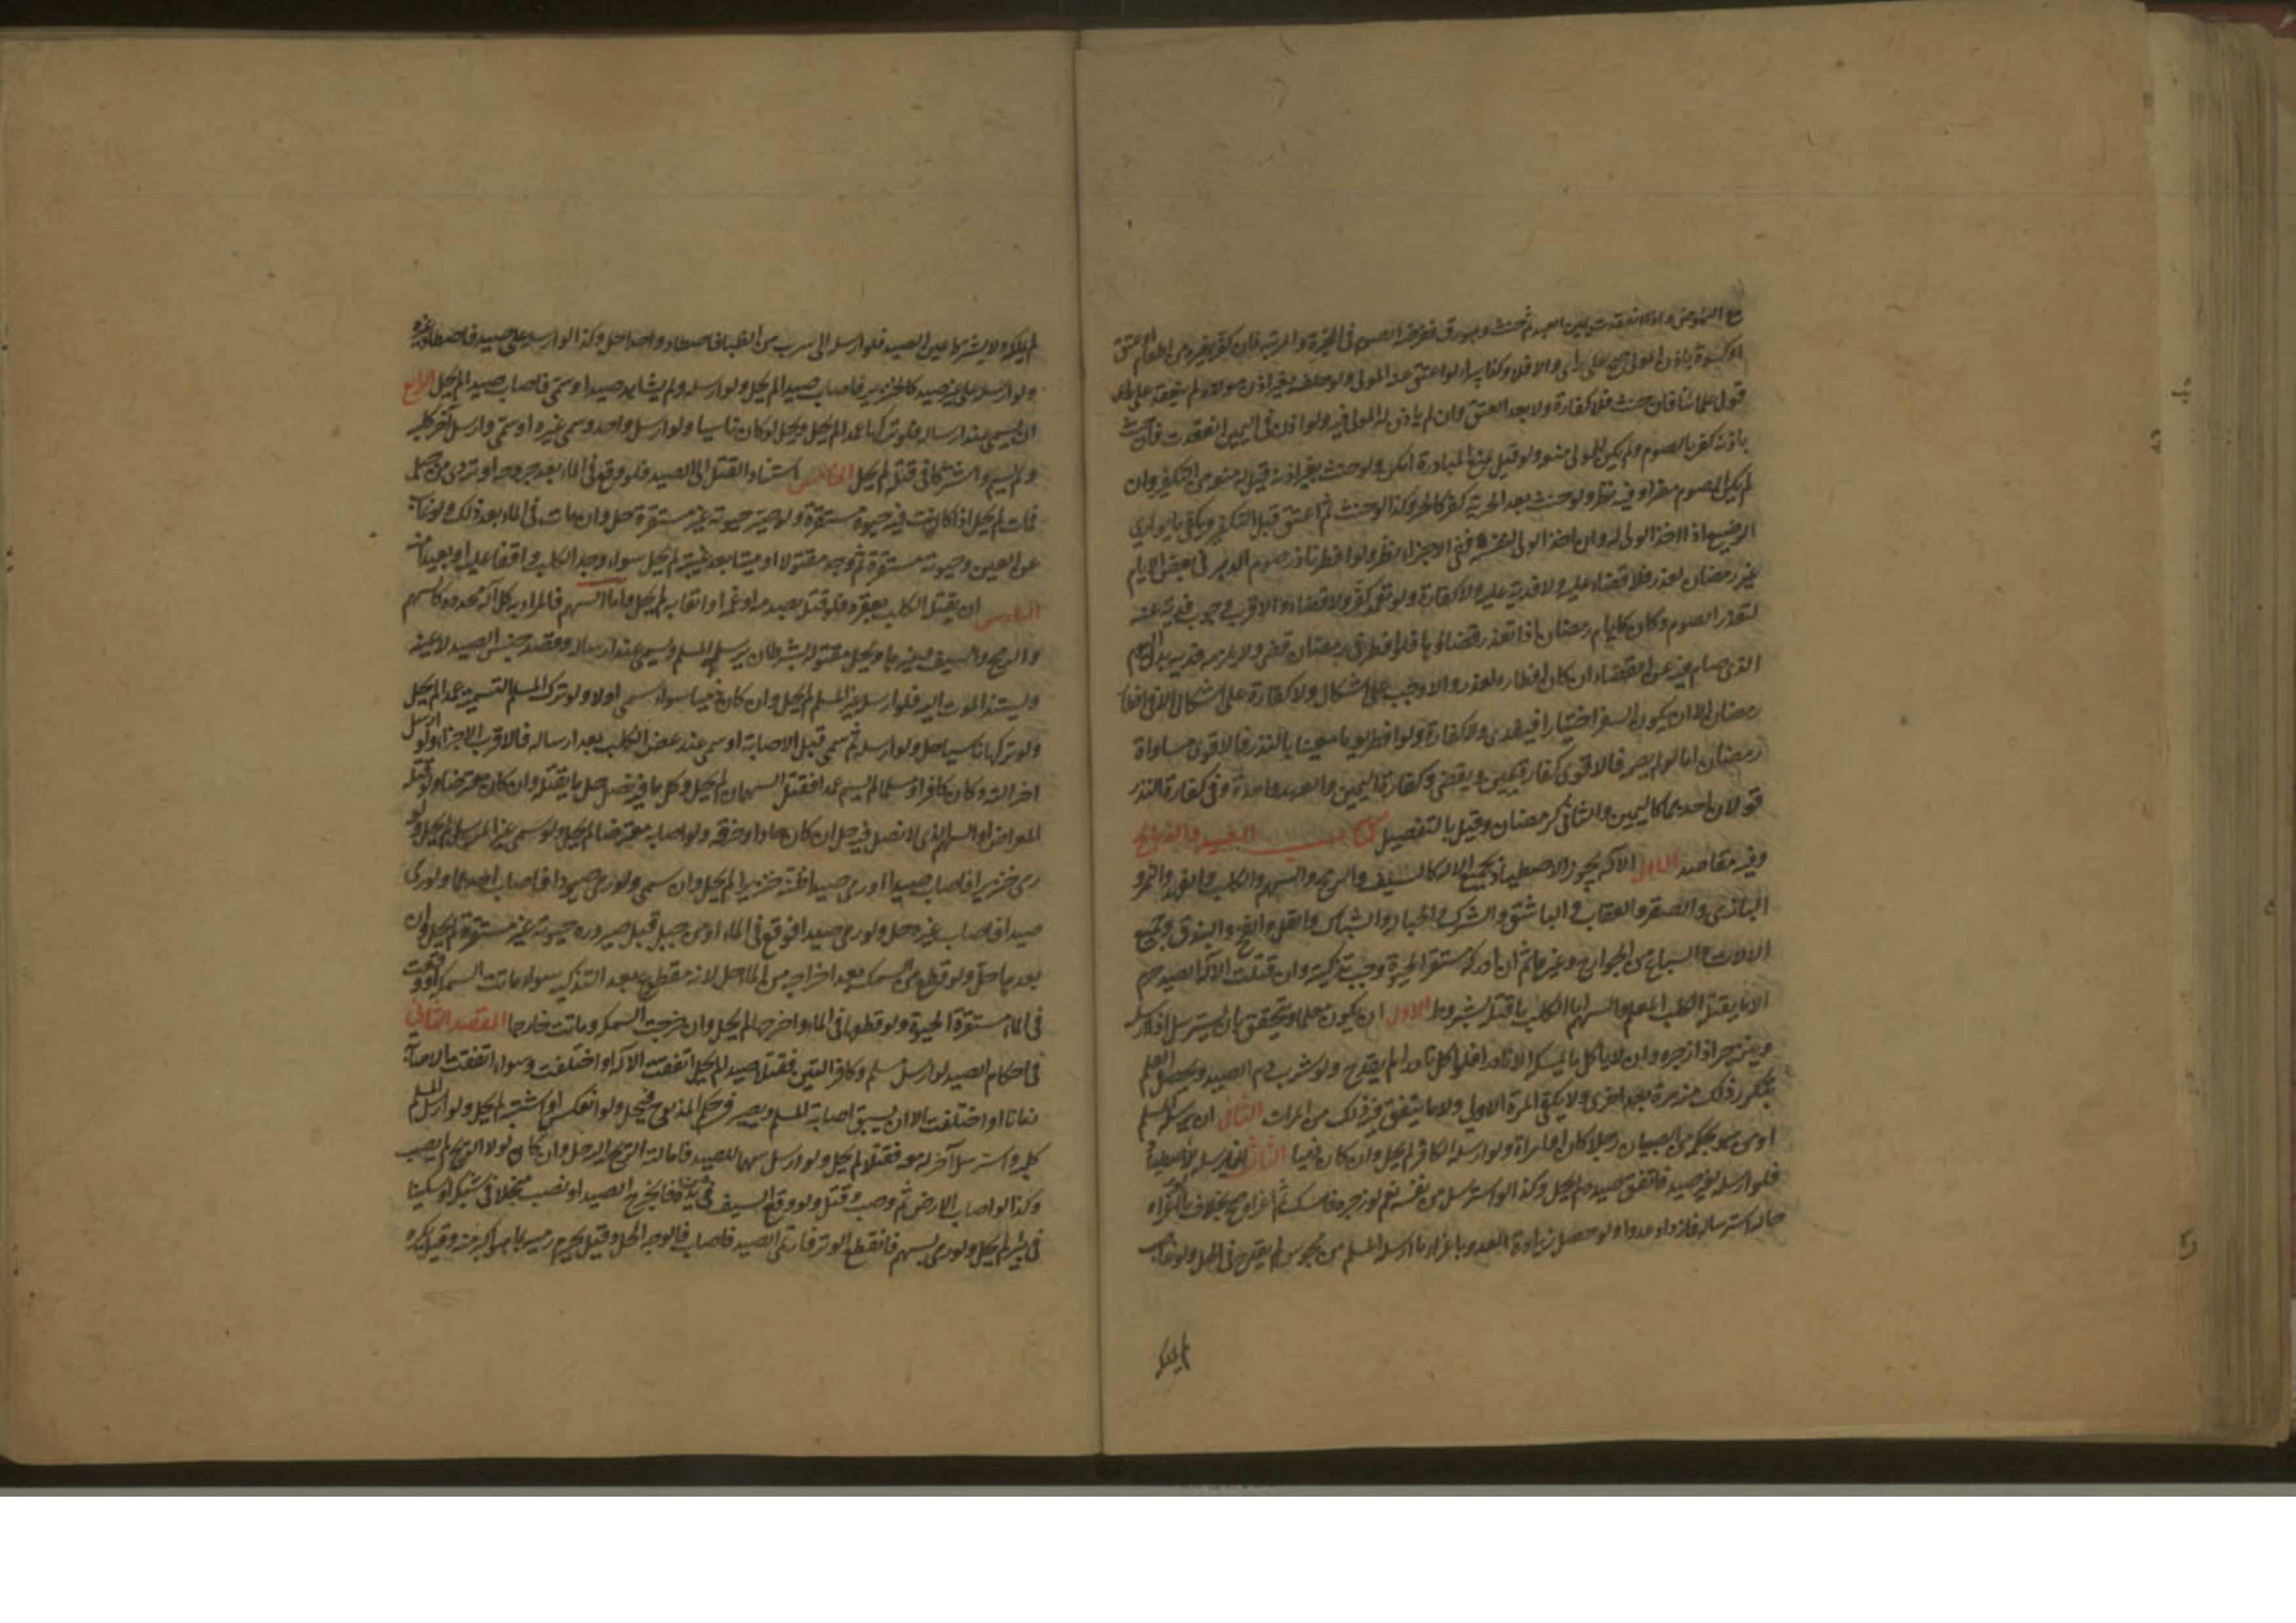 مع النهوض واذا انعقدت يمين العبد ثم حنث وهو رق ففرضه الصوم في المخيرة والمرتبة فان كفر بغيره من اطعام او عتق
او كسوة باذن المولى صح على راى والا فلا وكذا يبرا لو اعتق عنه المولى ولو حلف بغير اذن مولاه لم ينعقد على راى
قول علمائنا فان حنث فلا كفارة ولا بعد العتق وان لم ياذن له المولى فيه ولو اذن في اليمين انعقدت فان حنث
باذنه كفر بالصوم ولم يكن للمولى منعه ولو قيل بمنع المبادرة امكن ولو حنث بغير اذنه قيل له منعه من التكفير وان
لم يكن الصوم مضرا وفيه نظر ولو حنث بعد الحرية كفر كالحر وكذا لو حنث ثم اعتق قبل التكفير ويكفي ما يواري
الرضيع اذا اخذ الولى له وان اخذ الولى لنفسه ففي الاجزاء نظر ولو افطر ناذر صوم الدهر في بعض الايام
غير رمضان لعذر فلا قضاء عليه ولا فدية عليه ولا كفارة ولو تعمد كفر ولا قضاء والاقرب وجوب فدية عنه
لتعذر الصوم وكان كايام رمضان اذا تعذر قضاؤها فلو افطر في رمضان قضى ولا يلزمه فدية بدل اليوم
الذي صامه عن القضاء ان كان افطاره لعذر والا وجب على اشكال ولا كفارة على اشكال الا في افطار
رمضان الا ان يكون السفر اختيارا فيفدى ولا كفارة ولو افطر يوما معينا بالنذر فالاقوى مساواة
رمضان اما لو لم يصم فالاقوى كفارة يمين ويقضى وكفارة اليمين والعهد واحدة وفي كفارة النذر
قولان احدهما كاليمين والثاني كرمضان وقيل بالتفصيل كتاب الصيد والذبائح
وفيه مقاصد الاول الآلة يجوز الاصطياد بجميع الآلة كالسيف والرمح والسهم والكلب والفهد والنمر و
البازي والصقر والعقاب والباشق والشرك والحبالة والشباك والفخ والبندق وجميع
الآلات والسباع من الجوارح وغيرها ثم ان ادركه مستقر الحيوة وجب تذكيته وان قتلت الآلة الصيد حرم
الا ما يقتله الكلب المعلم والسهم اما الكلب يباح ما قتله بشروط الاول ان يكون معلما ويتحقق بان يسترسل اذا ارسله
وينزجر اذا زجره وان لا ياكل ما يمسكه الا نادرا فلو اكل نادرا لم يقدح ولو شرب دم الصيد ويحصل العلم
بتكرر ذلك منه مرة بعد اخرى ولا يكفي المرة الاولى ولا ما يتفق فيه ذلك من المرات الثاني ان يرسله المسلم
او من بحكمه من الصبيان رجلا كان او امراة ولو ارسله الكافر لم يحل وان كان ذميا الثالث ان يرسله للاصطياد
فلو ارسله لغير صيد فاتفق صيد لم يحل وكذا لو استرسل من نفسه نعم لو زجره فامسك ثم اغراه صح بخلاف ما لو اغراه
حال استرساله فازداد عدوا ولو حصل زيادة العدو باغراء ما ارسله المسلم من مجوسي لم يقدح في الحل ولو
لم يملكه
لم يملكه ولا يشترط عين الصيد فلو ارسله الى سرب من الظباء فاصطاد واحدا حل وكذا لو ارسله على صيد فاصطاد غيره
ولو ارسله على غير صيد كالخنزير فاصاب صيدا لم يحل ولو ارسله ولم يشاهد صيدا وسمى فاصاب صيدا لم يحل الرابع
ان يسمى عند ارساله فلو تركها عمدا لم يحل ويحل لو كان ناسيا ولو ارسل واحد وسمى غيره او سمى وارسل آخر كلبه
ولم يسم واشتركا في قتله لم يحل الخامس استناد القتل الى الصيد فلو وقع في الماء بعد جرحه او تردى من جبل
فمات لم يحل اذا كانت فيه حيوة مستقرة ولو صير حيوته غير مستقرة حل وان مات في الماء بعد ذلك ولو غاب
عن العين وحيوته مستقرة ثم وجد مقتولا او ميتا بعد غيبته لم يحل سواء وجد الكلب واقفا عليه او بعيدا منه
السادس ان يقتل الكلب بعقره فلو قتل بصدمه او غمه او اتعابه لم يحل واما السهم فالمراد به كل آلة محدودة كالسهم
والرمح والسيف وغيرها ويحل مقتوله بشرط ان يرسله المسلم ويسمى عند ارساله وقصد جنس الصيد لا عينه
ويستند الموت اليه فلو ارسل غير المسلم لم يحل وان كان ذميا سواء سمى او لا ولو ترك المسلم التسمية عمدا لم يحل
ولو تركها ناسيا حل ولو ارسله ثم سمى قبل الاصابة او سمى عند عض الكلب بعد ارساله فالاقرب الاجزاء ولو ارسل
آخر آلته وكان كافرا او مسلما لم يسم عمدا فقتل السهمان لم يحل وكل ما فيه نصل حل ما يقتله وان كان معترضا ولو قتله
المعراض او السهم الذي لا نصل فيه حل ان كان حادا وخرقه ولو اصابه معترضا لم يحل ولو سمى غير المرسل لم يحل ولو
رمى خنزيرا فاصاب صيدا او رمى صيدا فظنه خنزيرا لم يحل وان سمى ولو رمى صيودا فاصاب احدها ولو رمى
صيدا فاصاب غيره حل ولو رمى صيدا فوقع في الماء او من جبل قبل صيرورة حيوته غير مستقرة لم يحل وان
بعدها حل ولو قطع من السمكة بعد اخراجه من الماء حل لانه مقطوع بعد التذكية سواء ماتت السمكة او وقعت
في الماء مستقرة الحيوة ولو قطعها في الماء واخرجها لم يحل وان خرجت السمكة وماتت خارجا المقصد الثاني
في احكام الصيد لو ارسل مسلم وكافر آلتين فقتلا صيدا لم يحل اتفقت الآلة او اختلفت وسواء اتفقت الاصابة
زمانا او اختلفت الا ان يسبق اصابة المسلم ويصير في حكم المذبوح فيحل ولو انعكس او اشتبه لم يحل ولو ارسل المسلم
كلبه واسترسل آخر له معه فقتلا لم يحل ولو ارسل سهما للصيد فامالته الريح اليه حل وان كان لولا الريح لم يصب
وكذا لو اصاب الارض ثم وصب وقتل ولو وقع السيف في يده فانجرح الصيد او نصب منجلا في شبكة او سكينا
في بئر لم يحل ولو رمى بسهم فانقطع الوتر فارتمى الصيد فاصاب فالوجه الحل وقيل يحرم رميه بما هو اكبر منه وقيل يكره